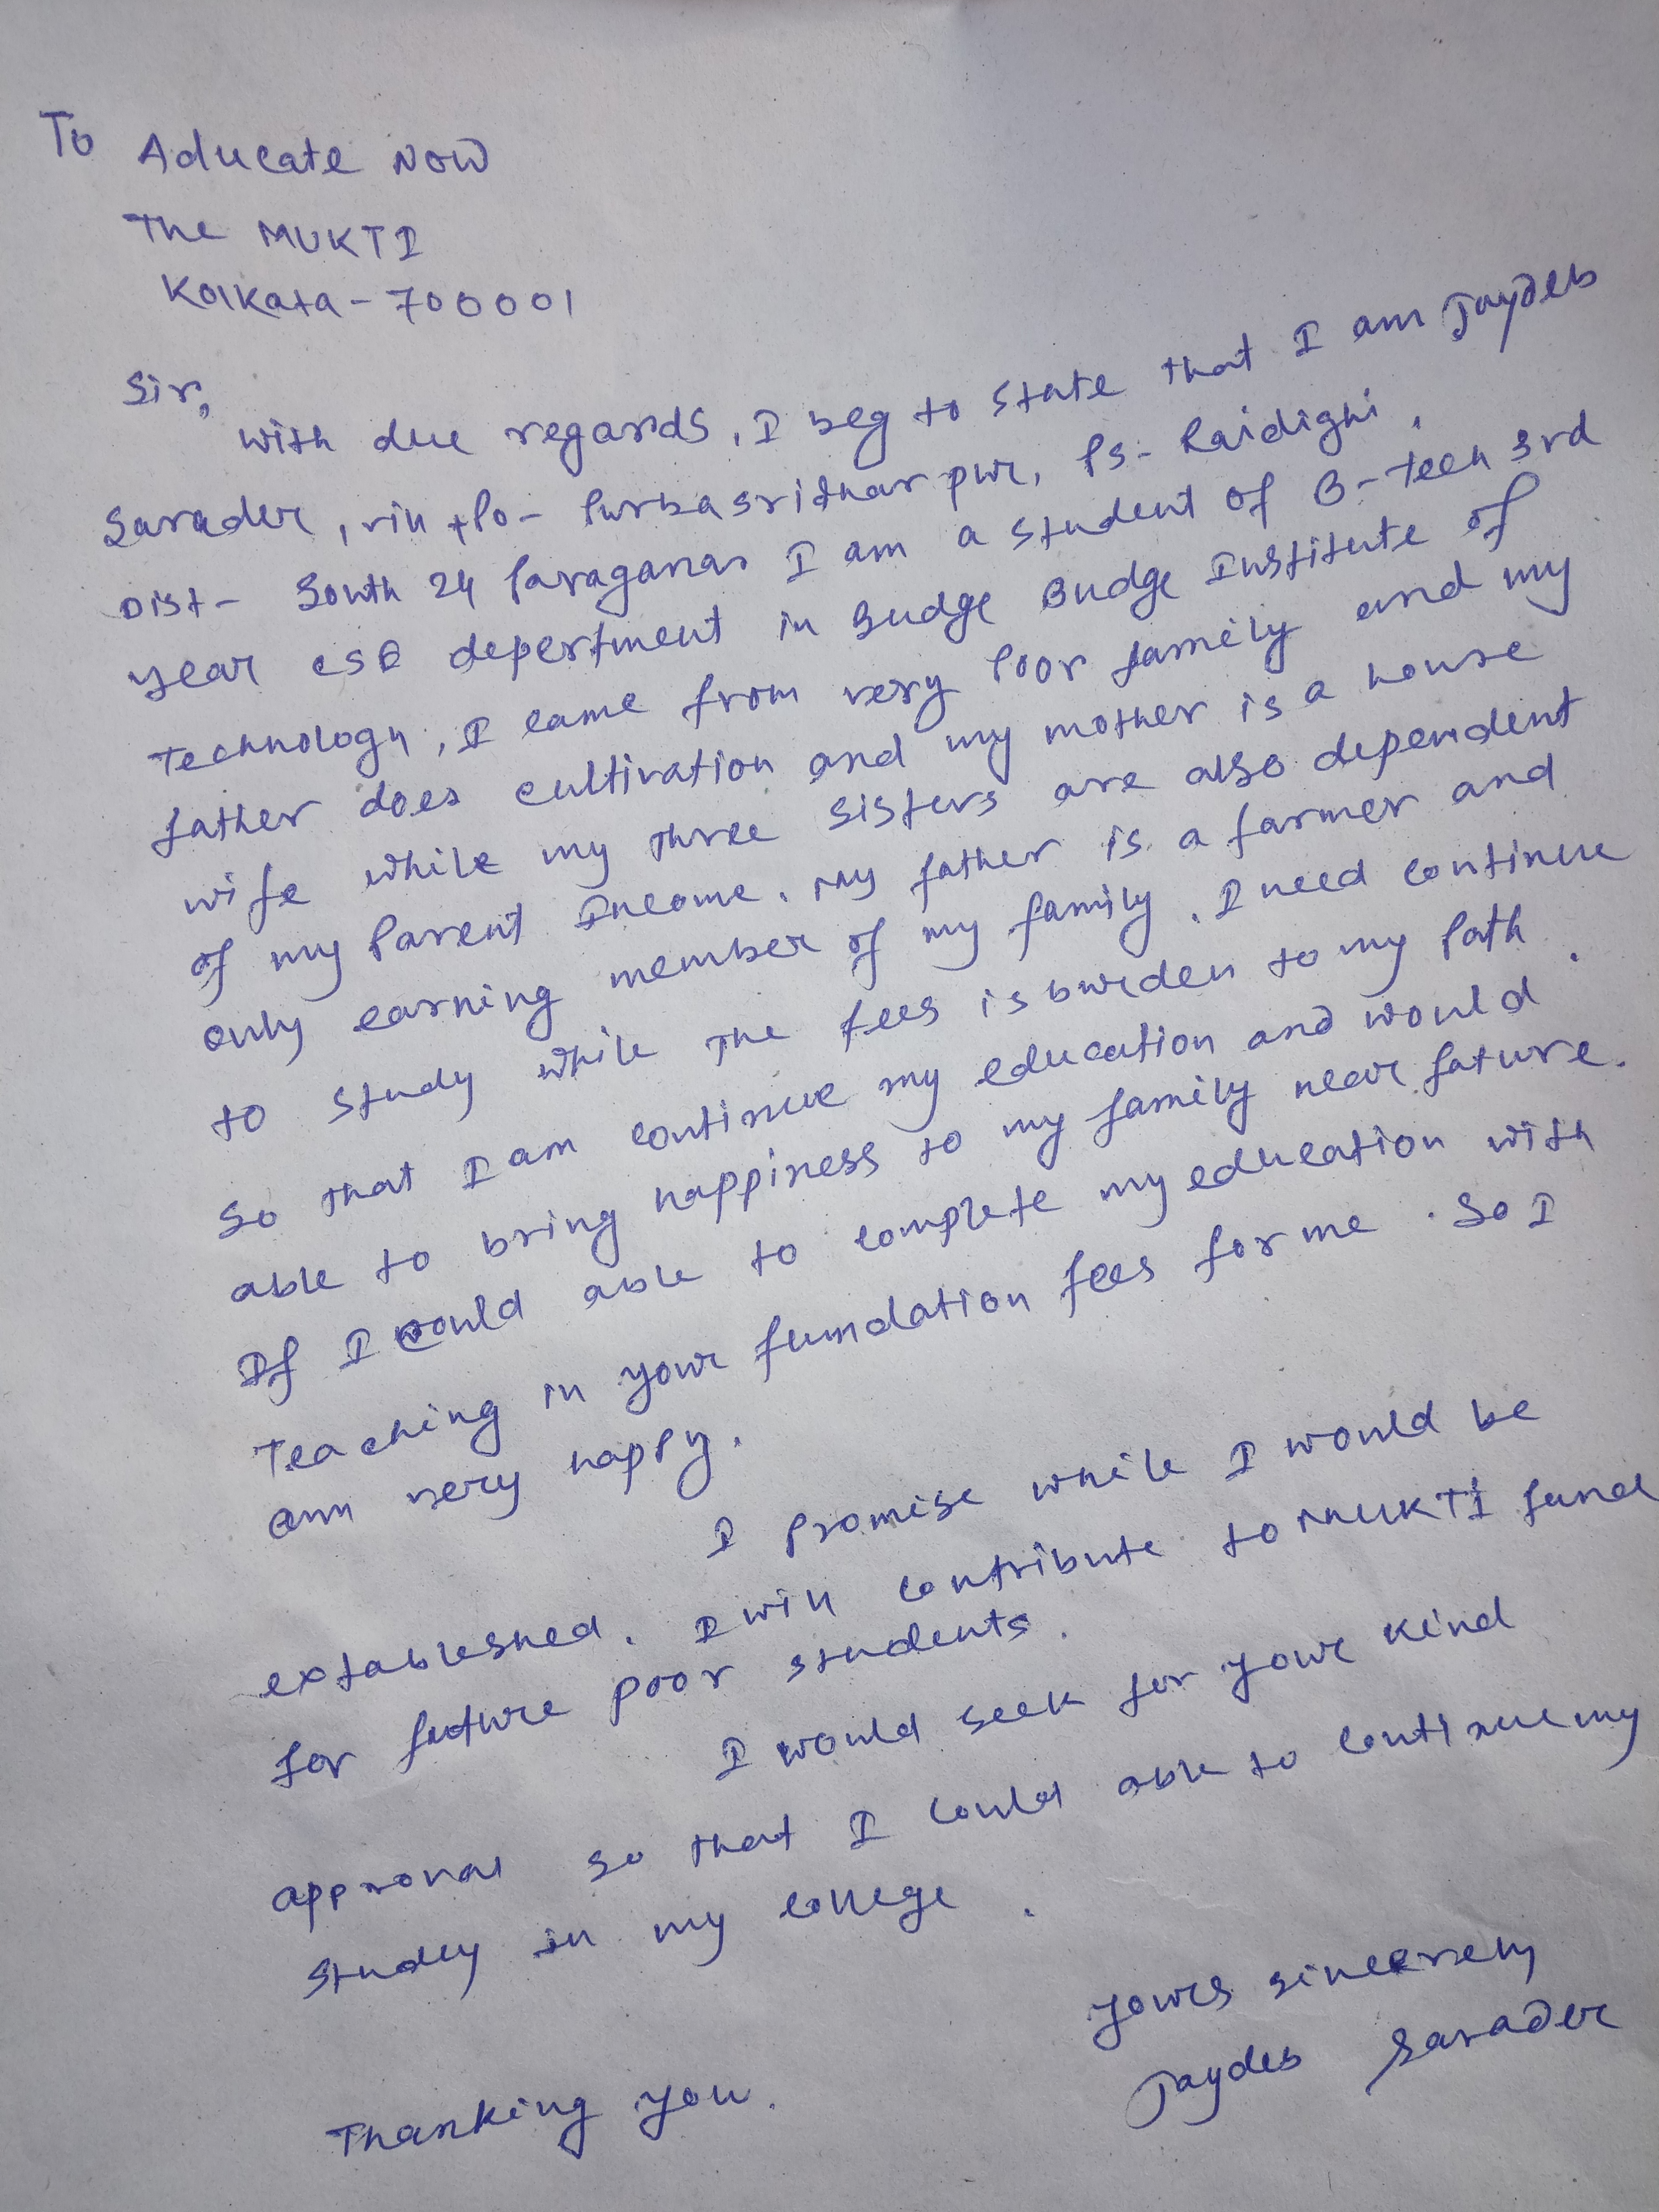 To Aducate Now
The MUKTI
Kolkata - 700001
Sir,
with due regards, I beg to state that I am Jaydeb
Sarader, vill + Po - Purbasridhar pur, Ps - Raidighi,
Dist - South 24 Paraganas I am a student of B-tech 3rd
year CSE depertment in Budge Budge Institute of
Technology, I came from very Poor family and my
father does cultivation and my mother is a house
wife while my three sisters are also dependent
of my Parent Income. My father is a farmer and
only earning member of my family. I need continue
to study while the fees is burden to my Path.
So that I am continue my education and would
able to bring happiness to my family near future.
If I could able to complete my education with
Teaching in your fundation fees for me. So I
am very happy.
I promise while I would be
extableshed. I will contribute to MUKTI fund
for future poor students.
I would seek for your kind
approval so that I could able to continue my
study in my college.
Yours sincerely
Thanking you. Jaydeb Sarader